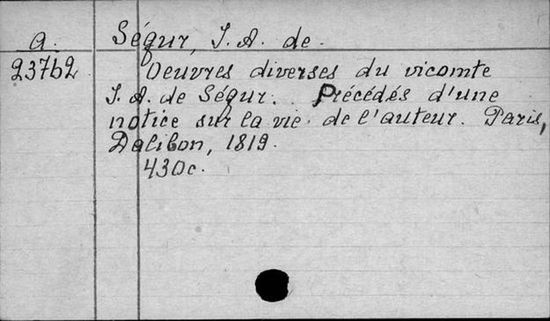 a.
Ségur, J. A. de.
23762
Oeuvres diverses du vicomte
J. A. de Ségur. Précédés d'une
notice sur la vie de l'auteur. Paris,
Dalibon, 1819.
430c.